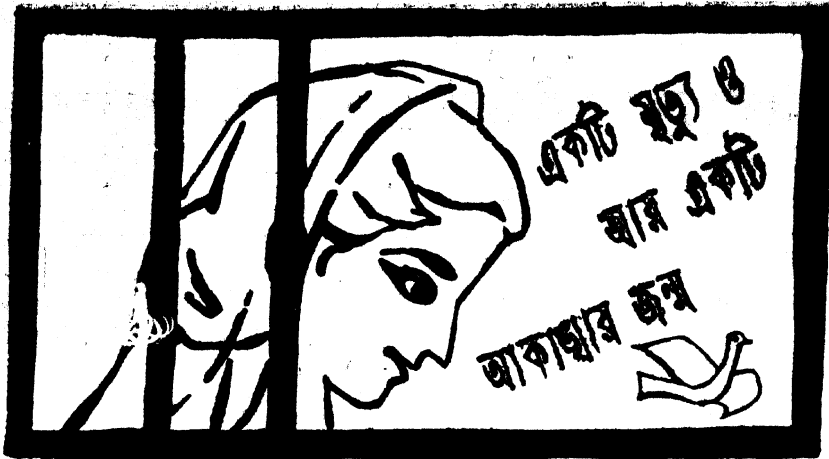 একটি মৃত্যু ও
আর একটি
আকাঙ্খার জন্ম